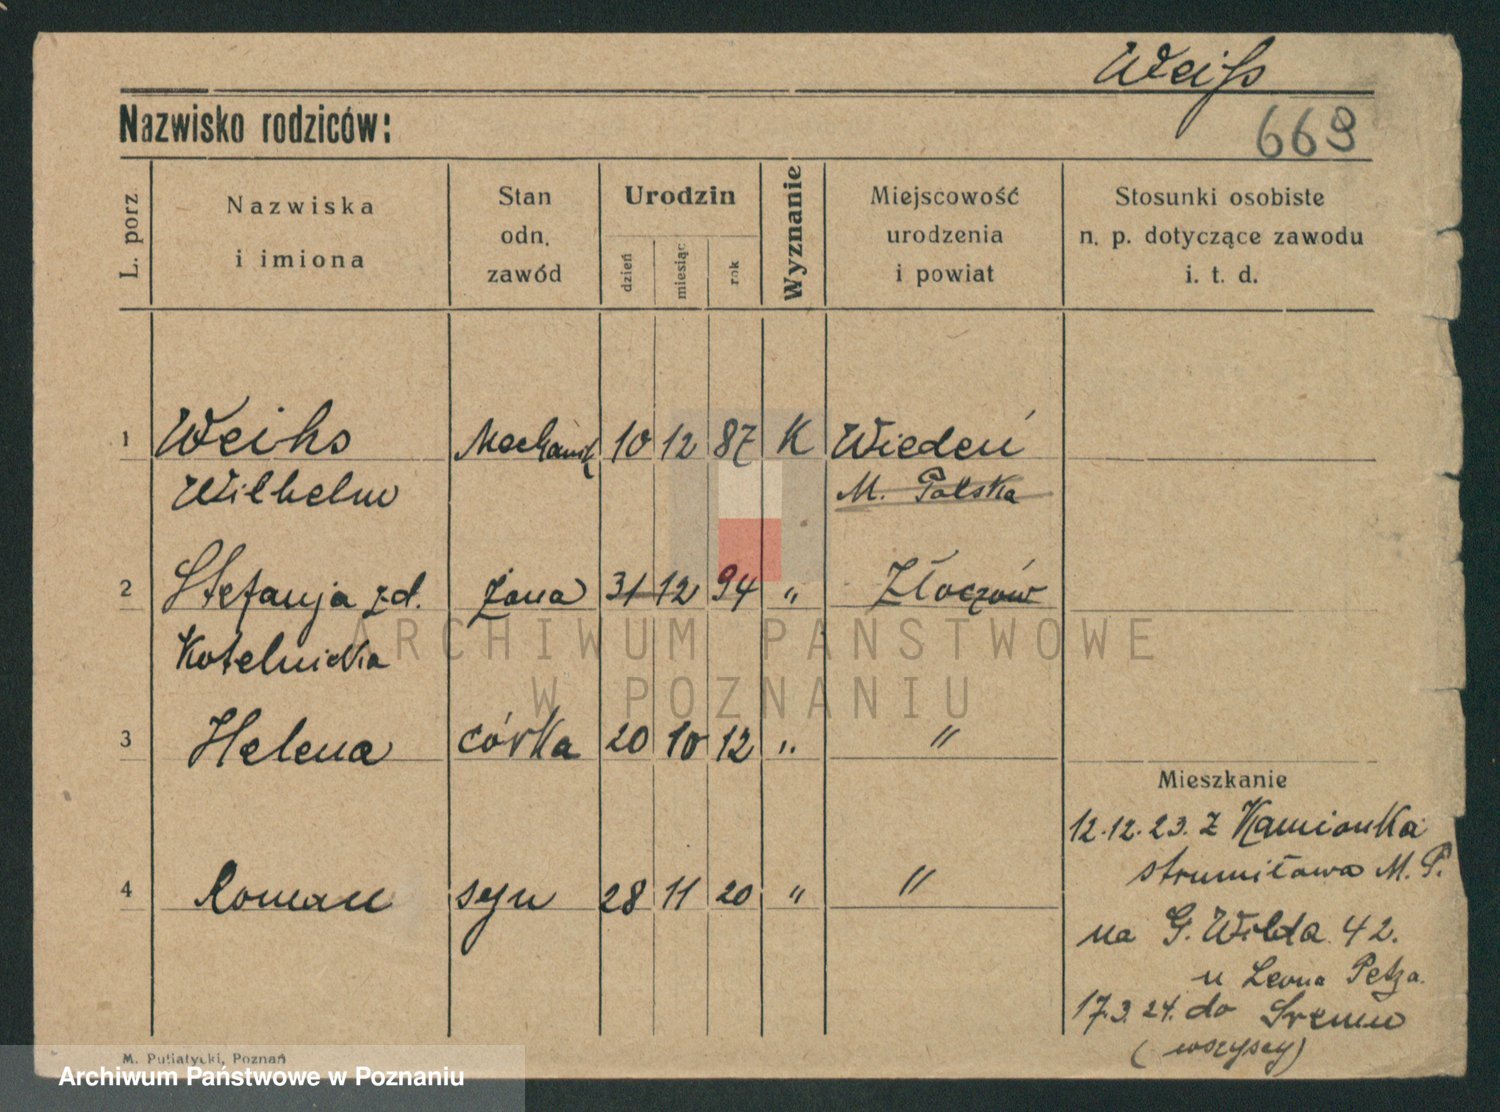 Weiſs
Nazwisko rodziców:
669
L. porz
Nazwiska
i imiona
Stan
odn.
zawód
Urodzin
dzień
miesiąc
rok
Wyznanie
Miejscowość
urodzenia
i powiat
Stosunki osobiste
n. p. dotyczące zawodu
i. t. d.
1 Weihs 10 12 87 K Wiedeń
Wilhelm M. Polska
2 Stefanja z d. żona 31 12 94 „ Złoczów
Kotelnicka
3 Helena córka 20 10 12 „ „
Mieszkanie
12.12.23. z Kamionka
strumiłowa M. P.
4 Roman syn 28 11 20 „ „
na G. Wilda 42.
u Leona Petza
17.3.24. do Śremu
(wszyscy)
M. Putiatycki, Poznań
ARCHIWUM PAŃSTWOWE
W POZNANIU
Archiwum Państwowe w Poznaniu